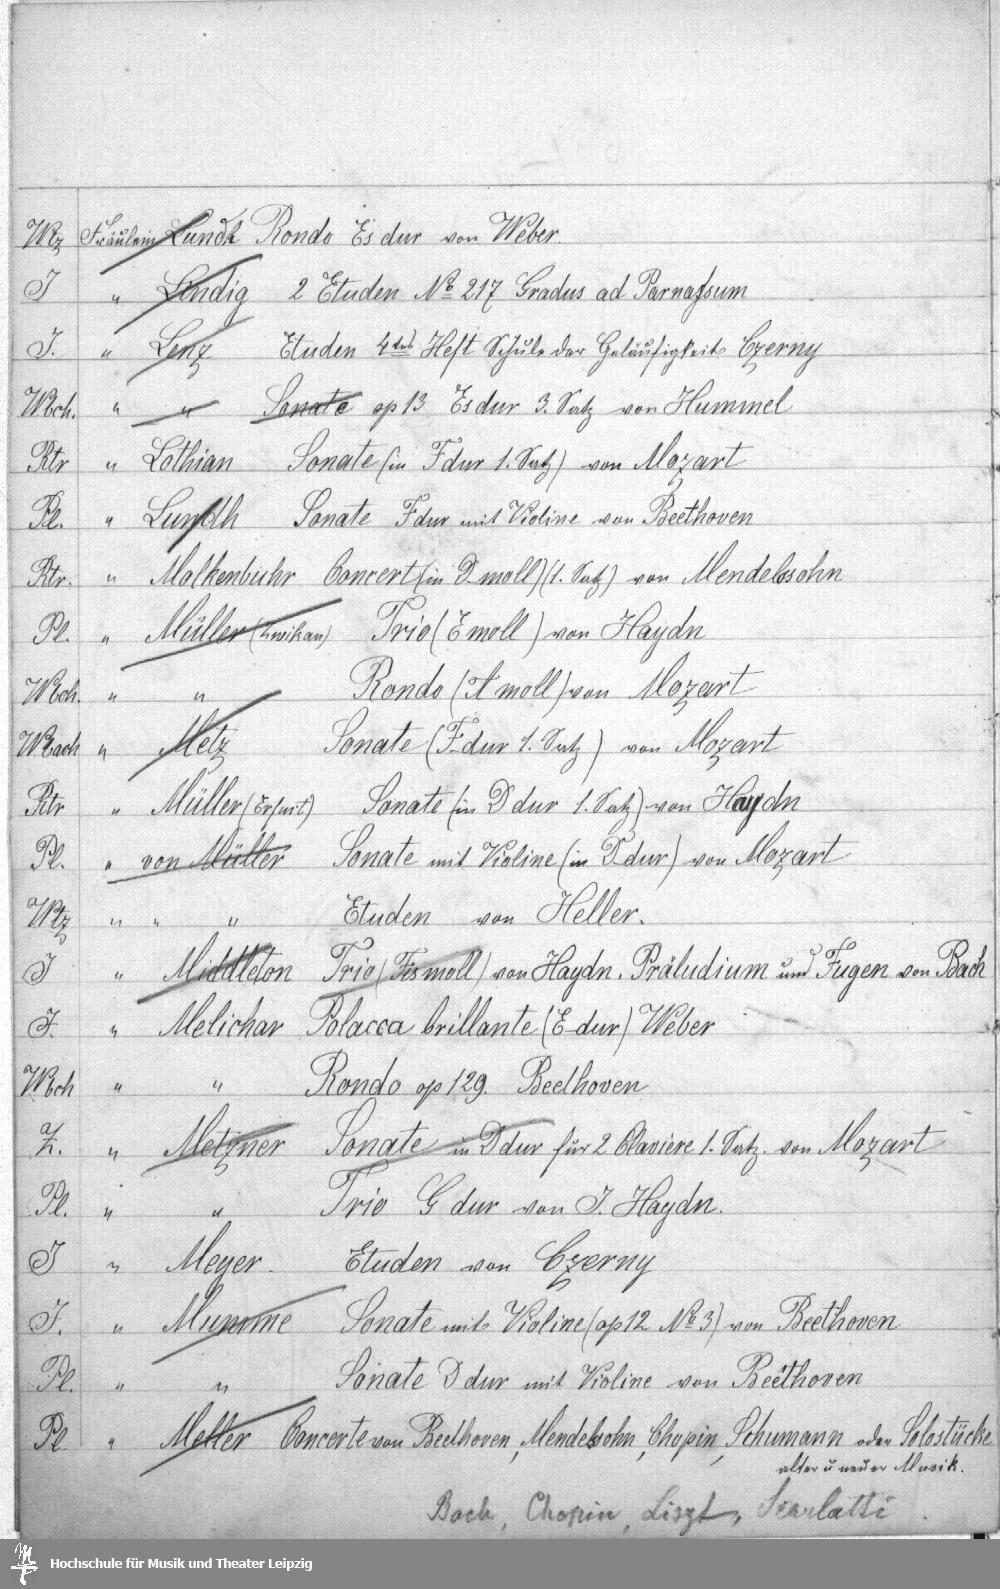 Wtz Fräulein Lundh Rondo Es dur von Weber
J " Lendig 2 Etuden No 217 Gradus ad Parnassum
J. " Lenz Etuden 4tes Heft Schule der Geläufigkeit Czerny
WBch. " " Sonate op 13 Es dur 3. Satz von Hummel
Rtr " Lothian Sonate (in F dur 1. Satz) von Mozart
Pl. " Lundh Sonate F dur mit Violine von Beethoven
Rtr. " Molkenbuhr Concert (in D moll) (1. Satz) von Mendelssohn
Pl. " Müller (Zwikau) Trio (E moll) von Haydn
WBch. " " Rondo (A moll) von Mozart
WBach " Metz Sonate (F dur 1. Satz) von Mozart
Rtr " Müller (Erfurt) Sonate (in D dur 1. Satz) von Haydn
Pl. " von Müller Sonate mit Violine (in D dur) von Mozart
Wtz " " " Etuden von Heller.
J " Middleton Trio (Fis moll) von Haydn. Präludium und Fugen von Bach
J. " Melichar Polacca brillante (E dur) Weber
WBch " " Rondo op 129. Beethoven
Z. " Metzner Sonate in D dur für 2 Claviere 1. Satz. von Mozart
Pl. " " Trio G dur von J. Haydn.
J " Meyer. Etuden von Czerny
J. " Mumme Sonate mit Violine (op 12 No 3) von Beethoven
Pl. " " Sonate D dur mit Violine von Beethoven
Pl " Melter Concerte von Beethoven, Mendelssohn, Chopin, Schumann oder Solostücke
alter u neuer Musik.
Bach, Chopin, Liszt, Scarlatti
Hochschule für Musik und Theater Leipzig